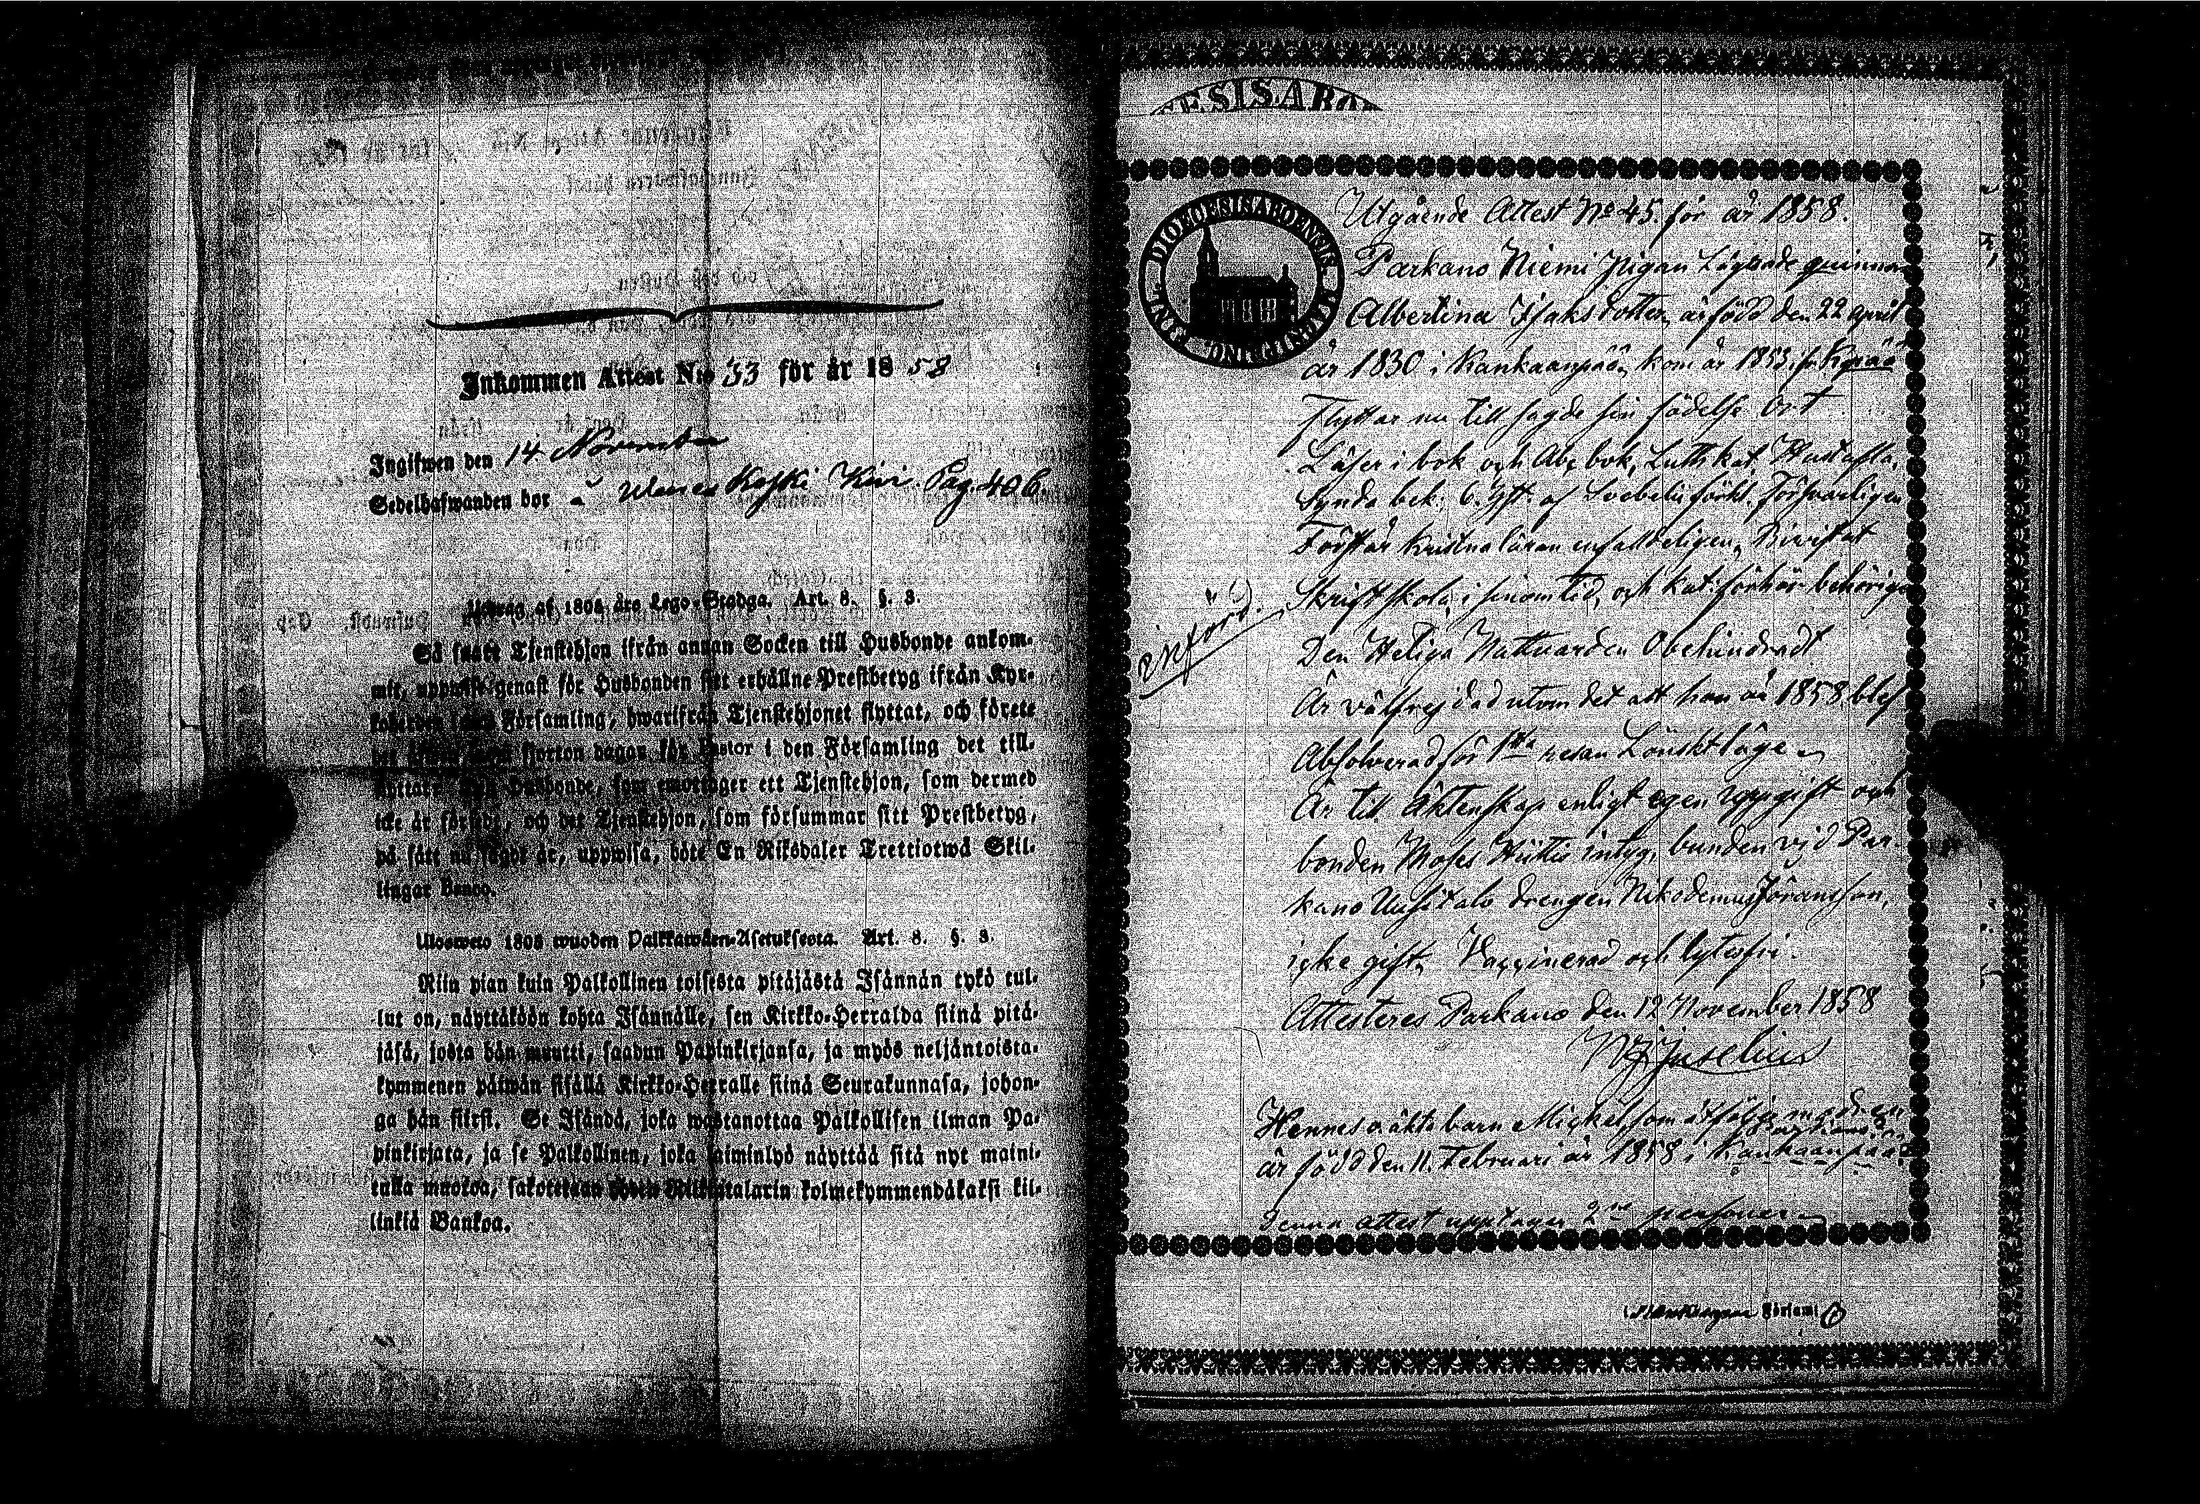 Inkommen Attest N:o 33 för år 1858
Ingifwen den 14 November
Sedelhafwanden bor å Keski Kivi. Pag. 406.
Utdrag af 1805 års Lego-Stadga. Art. 8. §. 3.
Så snart Tjenstehjon ifrån annan Socken till Husbonde ankom-
mit, uppwise genast för Husbonden sitt erhållne Prestbetyg ifrån Kyr-
Församling, hwarifrån Tjenstehjonet flyttat, och förete
fjorton dagar för Pastor i den Församling det till-
Husbonde, som emottager ett Tjenstehjon, som dermed
icke är försedt, och det Tjenstehjon, som försummar sitt Prestbetyg,
på sätt nu sagdt är, uppwisa, böte En Riksdaler Trettiotwå Skil-
lingar Banco.
Ulosweto 1805 wuoden Palkkawäen-Asetuksesta. Art. 8. §. 3.
Niin pian kuin Palkollinen toisesta pitäjästä Isännän tykö tul-
lut on, näyttäköön kohta Isännälle, sen Kirkko-Herralda siinä pitä-
jäsä, josta hän muutti, saadun Papinkirjansa, ja myös neljäntoista-
kymmenen päiwän sisällä Kirkko-Herralle siinä Seurakunnasa, johon-
ga hän siirsi. Se Isändä, joka wastanottaa Palkollisen ilman Pa-
pinkirjata, ja se Palkollinen, joka laiminlyö näyttää sitä nyt maini-
tulla muotoa, sakotetaan Riikintalarin kolmekymmendäkaksi kil-
linkiä Bankoa.
DIOECESIS ABOENSIS
Utgående Attest No 45. för år 1858.
Parkano Niemi Pigan Lägrade quinnan
Albertina Isaksdotter, är född den 22 april
år 1830 i Kankaanpää, kom år 1853 fr. Kpää
Flyttar nu till sagde sin födelse Ort
Läser i bok och Abc bok, Luth. kat, Hustafla,
Synda bek: 6. af Svebelii förkl. Försvarligen
Förstår Kristna läran enfalldeligen, Bivistat
Skriftskola, i sinom tid, och kat: förhör behörigen
Den Heliga Nattvarden Obehindradt
Är välfrejdad utom det att hon år 1858 blef
Absolverad för 1sta resan Lönsktläge
Är till äktenskap enligt egen uppgift och
bonden Moses intyg, bunden vid Par-
kano Uusitalo drengen Nikodemus Göransson,
icke gift, Vaccinerad och lytesfri.
Attesteres Parkano den 12 November 1858
Införd.
Hennes oäkta barn Mickel, som åtföljer modren
är född den 11. Februari år 1858 i Kankaanpää
Denna attest upptager 2ne personer
Församl